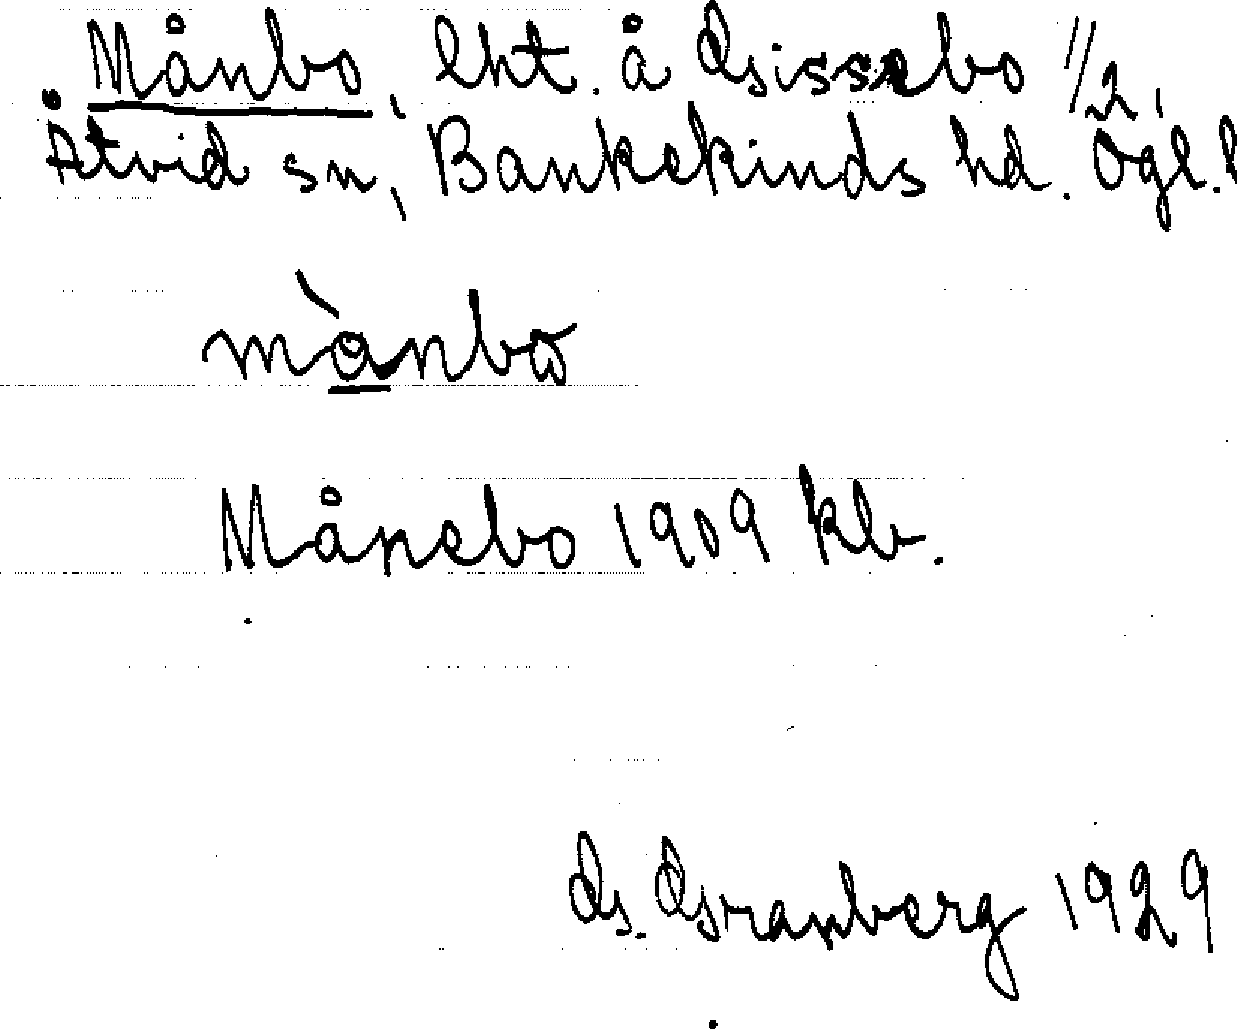 Månbo, lht. å Gissebo 1/2,
Åtvid sn, Bankekinds hd. Ögl. l
mànbo
Månebo 1909 kb.
G. Granberg 1929